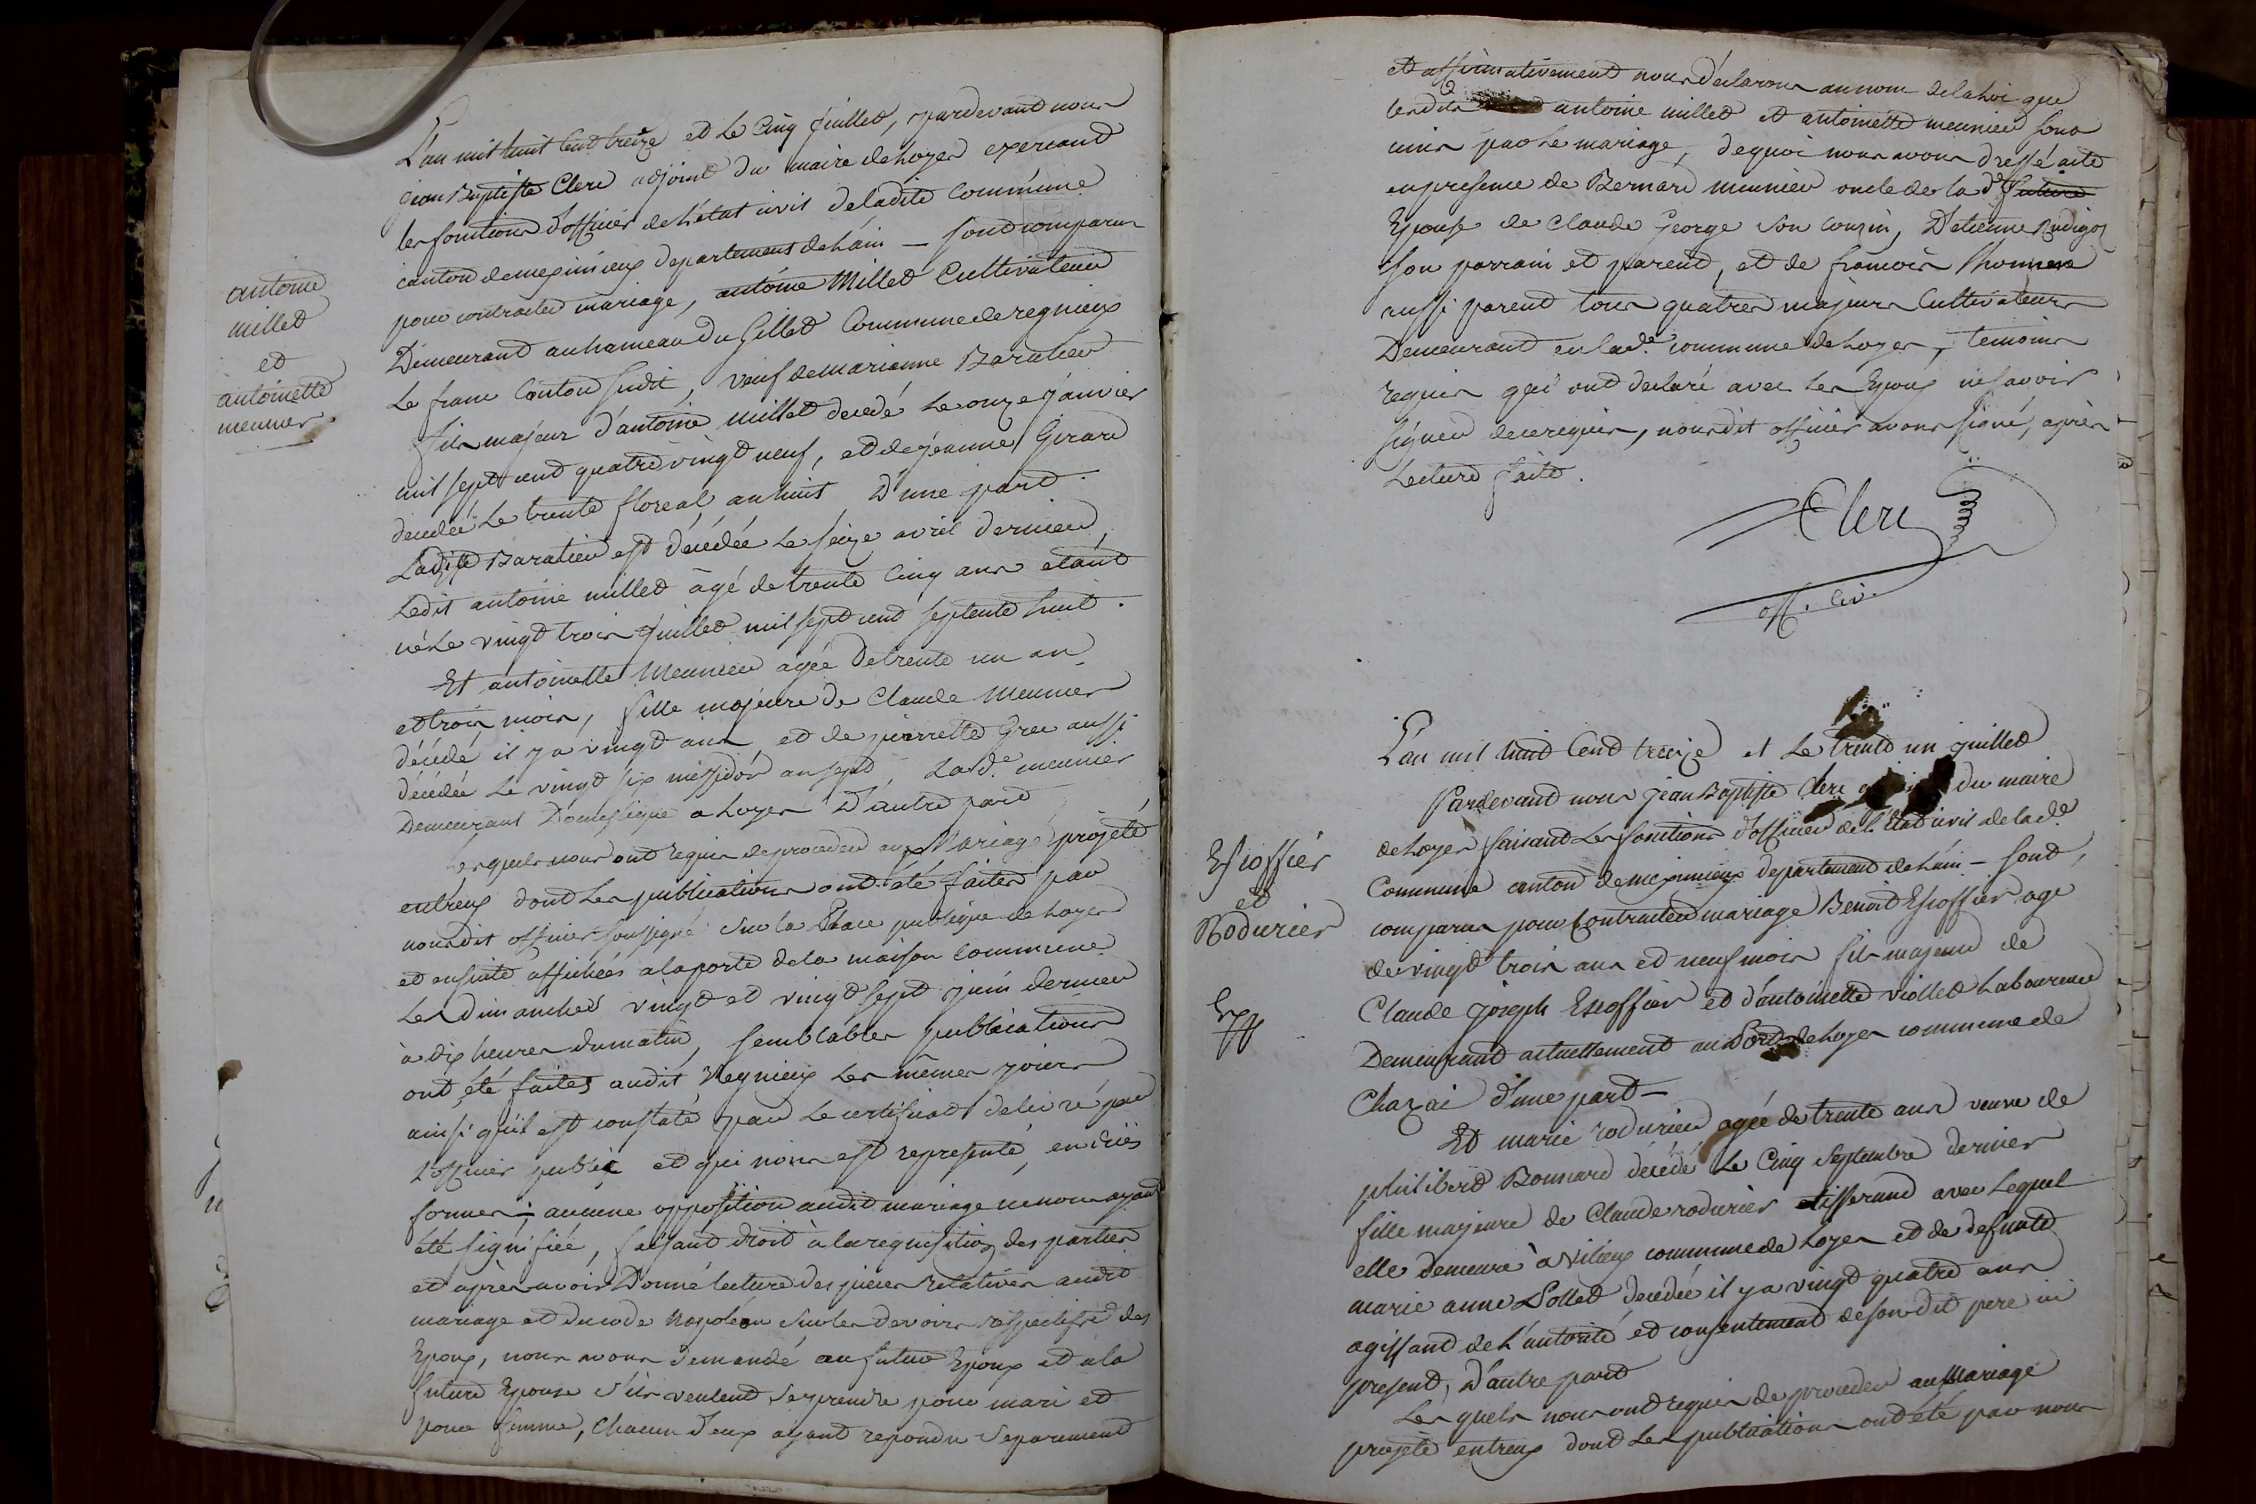 antoine
millet
et
antoinette
meunier
L'an mil huit Cent treize et le Cinq juillet, pardevant nous
jean Baptiste Clerc adjoint du maire de Loyes exerçant
les fonctions d'officier de l'état civil de ladite Commune
canton de meximieux departement de l'ain — sont comparus
pour contracter mariage, antoine Millet Cultivateur
Demeurant au hameau du Gillet Commune de regnieux
Le franc Canton susdit, veuf de marianne Baratier
fils majeur d'antoine millet decedé le onze janvier
mil sept cent quatre vingt neuf, et de jeanne Girard
decedée le trente floreal an huit D'une part.
Ladite Baratier est décédée le seize avril dernier,
Ledit antoine millet âgé de trente Cinq ans étant
né le vingt trois juillet mil sept cent septente huit.
Et antoinette Meunier agée de trente un an
et trois mois, fille majeure de Claude Meunier
décédé il y a vingt ans, et de pierrette Grec aussi
décédée le vingt six messidor an sept, Lade. meunier
Demeurant Domestique a Loyes D'autre part
Lesquels nous ont requis de proceder au Mariage projeté
entreux dont les publications ont été faites par
nousdit officier soussigné sur la Place publique de Loyes
et ensuite affichées a la porte de la maison Commune
Les Dimanches vingt et vingt sept juin dernier
à dix heures du matin, semblables publications
ont été faites audit Regnieux les mêmes jours
ainsi qu'il est constaté par le certificat délivré par
L'officier public et qui nous est representé,
aucune opposition audit mariage ne nous ayant
été signifiée, faisant droit à la requisition des parties
et après avoir Donné lecture des pièces relatives audit
mariage et du code Napoléon sur les devoirs respectifs des
Epoux, nous avons demandé au futur Epoux et a la
future Epouse s'ils veulent se prendre pour mari et
pour femme, Chacun d'eux ayant repondu separement
et affirmativement nous déclarons au nom de la loi que
lesdits antoine millet et antoinette meunier sont
unis par le mariage, dequoi nous avons dressé acte
en presence de Bernard meunier oncle de lade. future
Epouse de Claude George son cousin, D'etienne Rudigoz
son parrain et parent, et de francois
aussi parent tous quatres majeurs Cultivateurs
Demeurant en lade. commune de Loyes, temoins
requis qui ont declaré avec les Epoux ne savoir
signer de ce requis, nousdit officier avons signé, après
Lecture faite.
Clerc
off. civ.
Escoffier
et
Rodurier
Exp
L'an mil huit Cent treize et le trente un juillet
Pardevant nous jean Baptiste Clerc du maire
de Loyes faisant les fonctions d'officier de l'état civil de lade.
Commune canton de meximieux departement de l'ain — sont
comparus pour Contracter mariage Benoit Escoffier age
de vingt trois ans et neuf mois fils majeur de
Claude joseph Escoffier et d'antoinette viollet Laboureur
Demeurant actuellement au Port de Loyes commune de
Chazai d'une part —
Et marie rodurier agée de trente ans veuve de
philibert Bonnard décédé le Cinq Septembre dernier
fille majeure de Claude rodurier tisserand avec lequel
elle demeure à vilieux commune de Loyes et de defunte
marie anne Lollet decedée il y a vingt quatre ans
agissant de l'autorité et consentement de sondit pere ici
present, D'autre part
Lesquels nous ont requis de proceder au Mariage
projeté entreux dont les publications ont été par nous